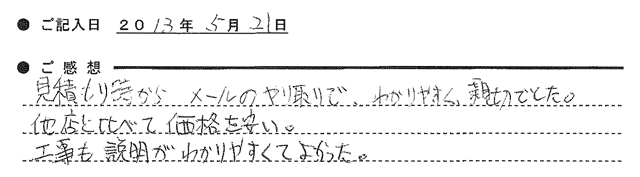 ● ご記入日 2013年 5月 21日
● ご感想
見積もり等から メールのヤリ取りで、わかりやすく、親切でした。
他店と比べて価格も安い。
工事も説明がわかりやすくてよかった。